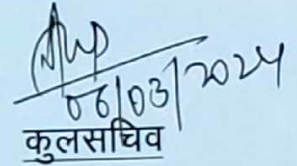 06/03/2024
कुलसचिव